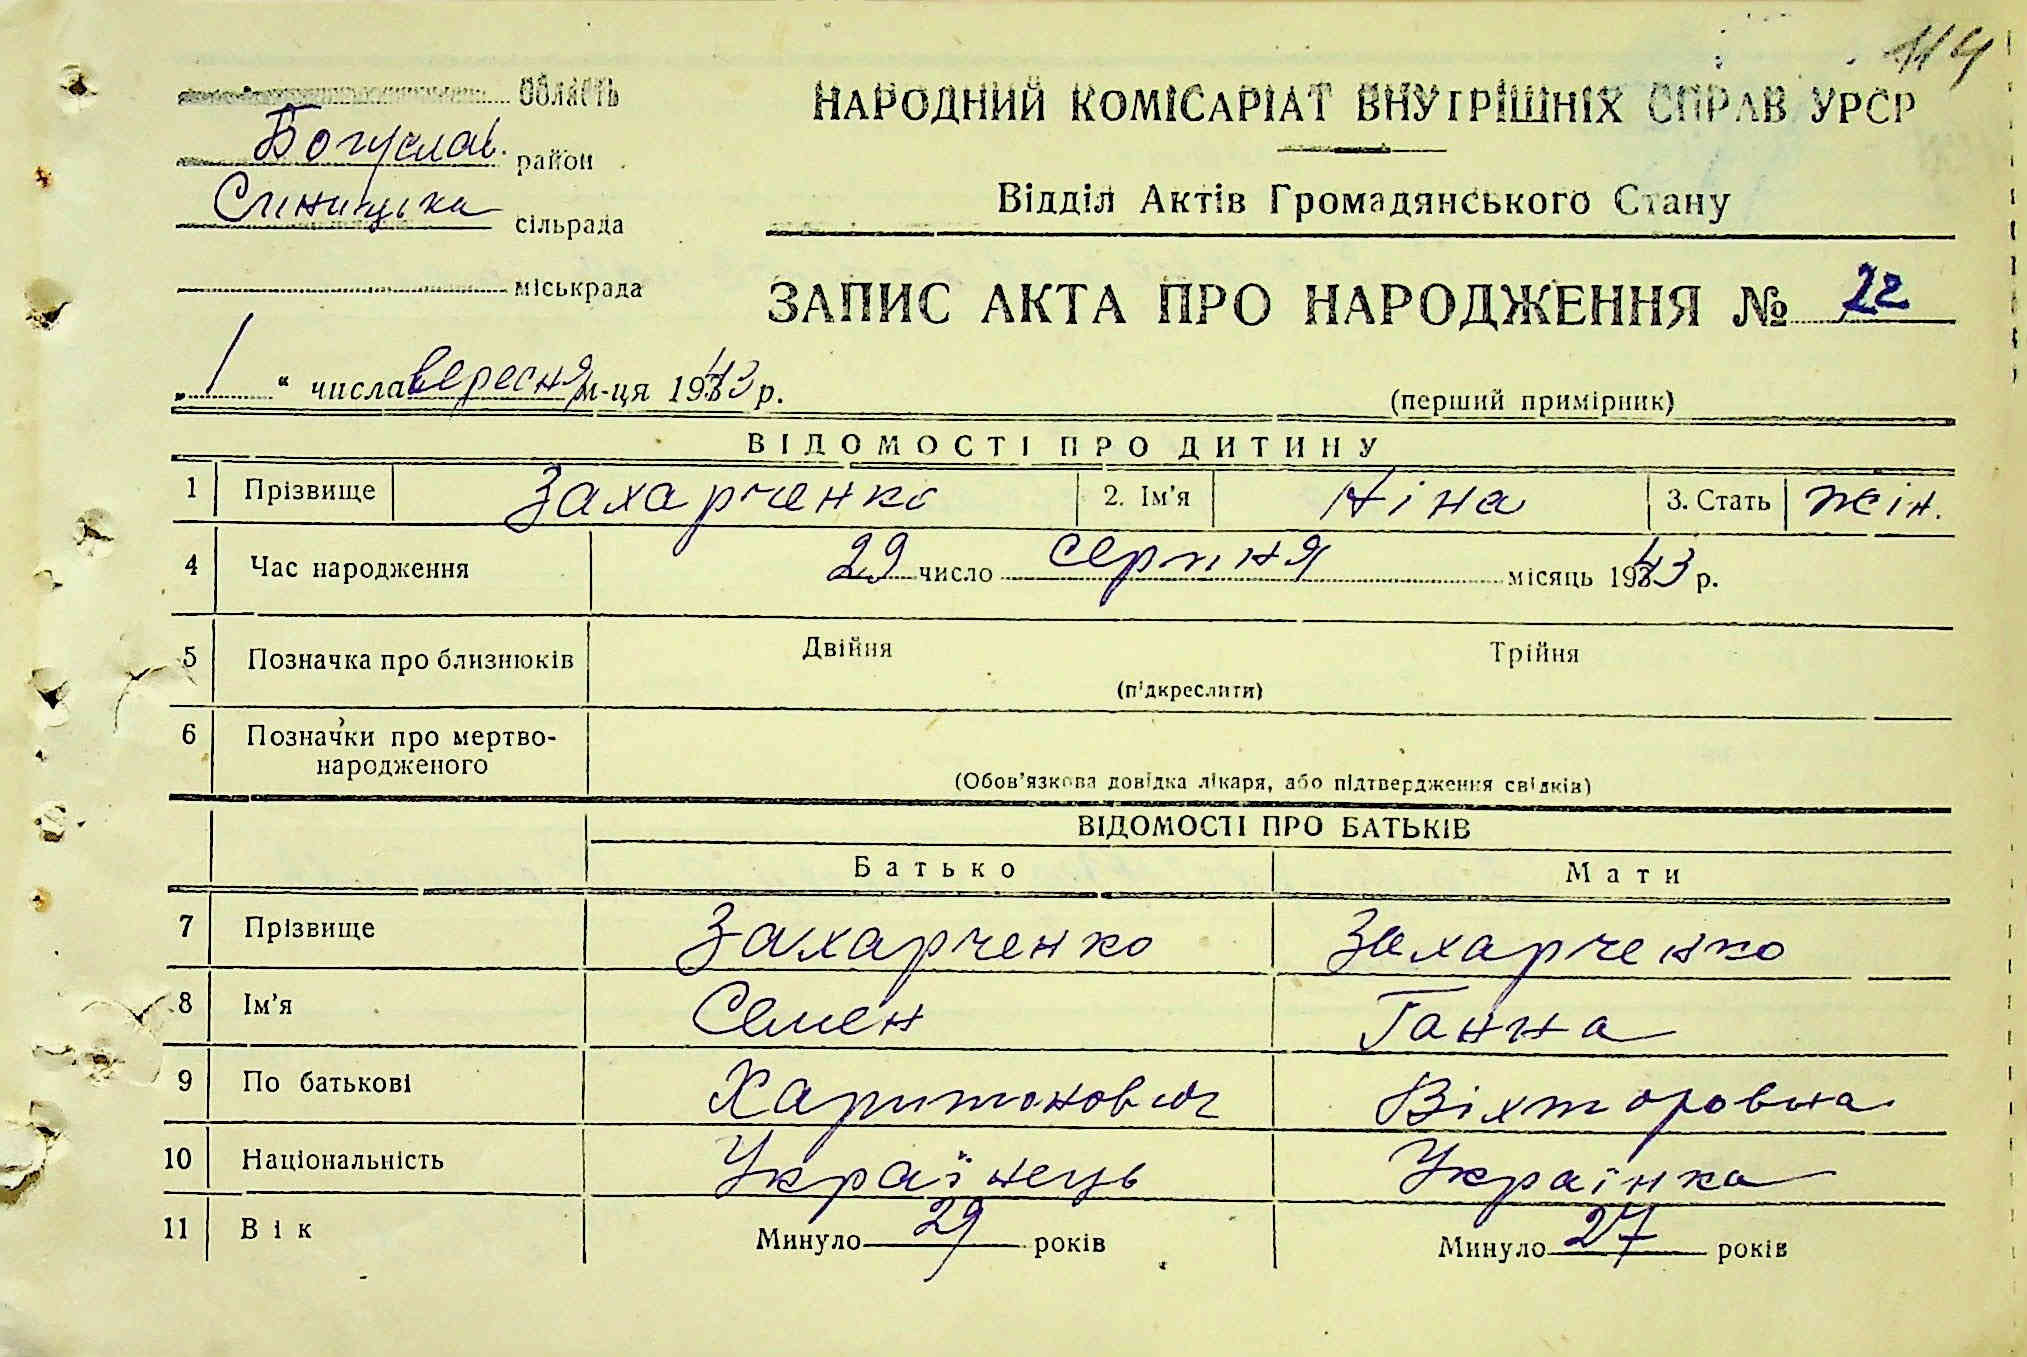 114
область
НАРОДНИЙ КОМІСАРІАТ ВНУТРІШНІХ СПРАВ УРСР
Богуслав. район
Відділ Актів Громадянського Стану
Синицька сільрада
міськрада
ЗАПИС АКТА ПРО НАРОДЖЕННЯ № 22
„1“ числа вересня м-ця 1943 р.
(перший примірник)
ВІДОМОСТІ ПРО ДИТИНУ
1 Прізвище Захарченко 2. Ім'я Ніна 3. Стать жін.
4 Час народження 29 число серпня місяць 1943 р.
5 Позначка про близнюків Двійня Трійня
(підкреслити)
6 Позначки про мертво-
народженого
(Обов'язкова довідка лікаря, або підтвердження свідків)
ВІДОМОСТІ ПРО БАТЬКІВ
Батько Мати
7 Прізвище Захарченко Захарченко
8 Ім'я Семен Ганна
9 По батькові Харитонович Вікторовна
10 Національність Українець Українка
11 Вік Минуло 29 років Минуло 27 років